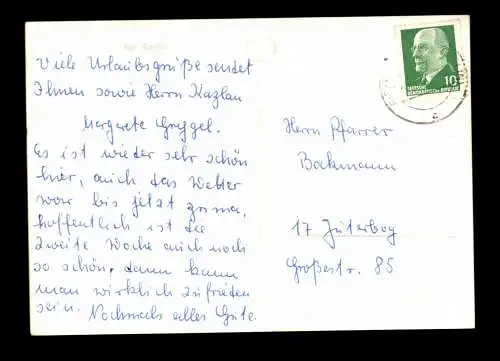 Viele Urlaubsgrüße sendet
Ihnen sowie Herrn Kazlau
Margarete Greggel.
Es ist wieder sehr schön
hier, auch das Wetter
war bis jetzt prima,
hoffentlich ist die
zweite Woche auch noch
so schön, dann kann
man wirklich zufrieden
sein. Nochmals alles Gute.
10
DEUTSCHE
DEMOKRATISCHE REPUBLIK
Herrn Pfarrer
Bockmann
17 Jüterbog
Große str. 85